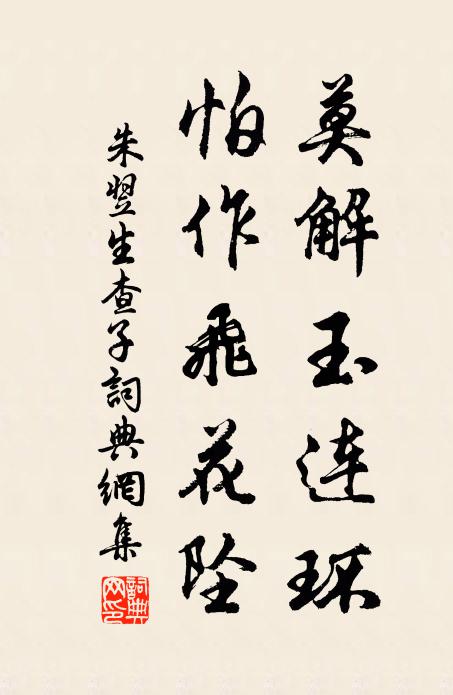 莫解玉连环
怕作飞花坠
朱翌生查子詞典網集
詞典网印